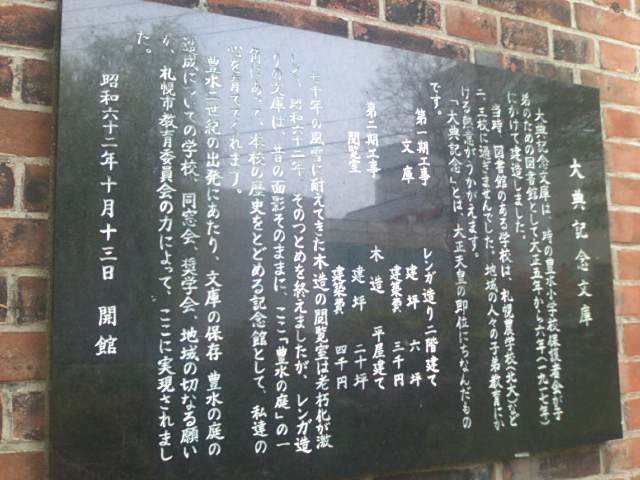 大典記念文庫
大典記念文庫は、時の豊水小学校保護者会が子
弟のための図書館として大正五年から六年(一九一七年)
にかけて建造しました。
当時、図書館のある学校は、札幌農学校(北大)など
二、三校に過ぎませんでした。地域の人々の子弟教育にか
ける熱意がうかがえます。
「大典記念」とは、大正天皇の即位にちなんだもの
です。
第一期工事 レンガ造り二階建て
文庫 建坪 六坪
建築費 三千円
第二期工事 木造 平屋建て
閲覧室 建坪 二十坪
建築費 四千円
七十年の風雪に耐えてきた木造の閲覧室は老朽化が激
しく、昭和六十二年、そのつとめを終えましたが、レンガ造
りの文庫は、昔の面影そのままに、ここ「豊水の庭」の一
角にあって、本校の歴史をとどめる記念館として、私達の
心を育ててくれます。
豊水二世紀の出発にあたり、文庫の保存 豊水の庭の
造成についての学校、同窓会、奨学会、地域の切なる願い
が、札幌市教育委員会の力によって、ここに実現されまし
た。
昭和六十二年十月十三日 開館